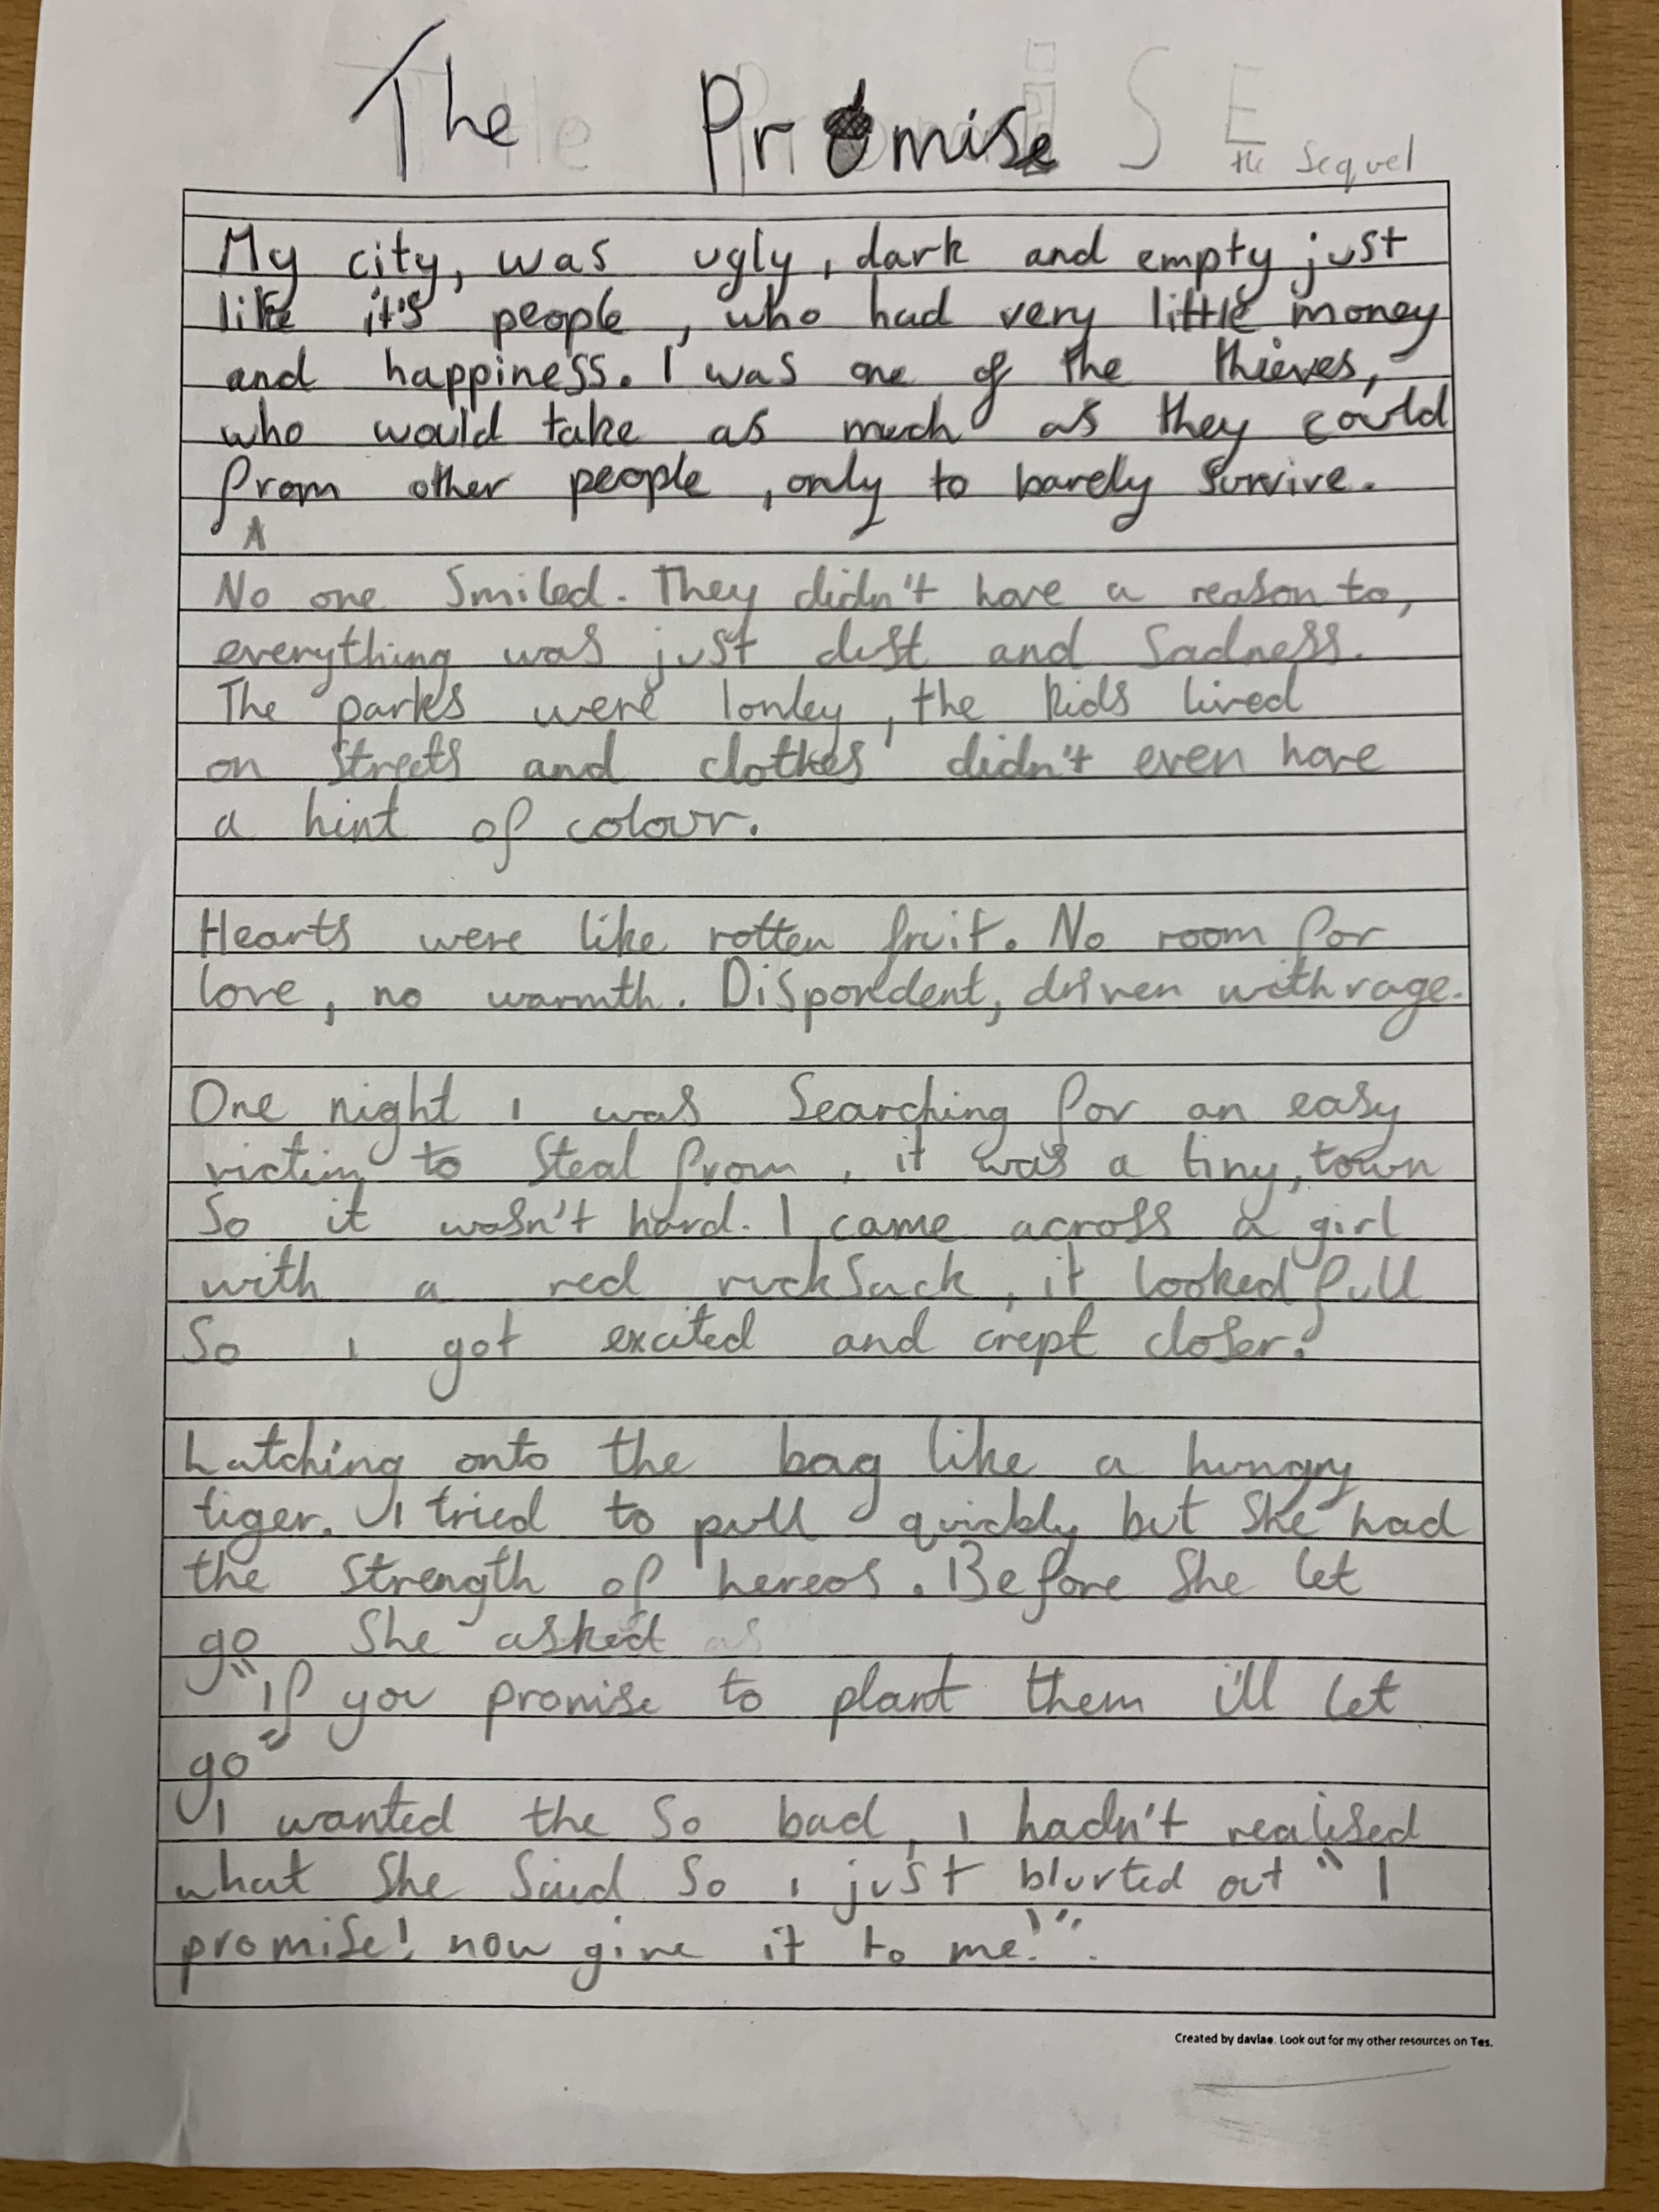 The Promise
the Sequel
My city, was ugly, dark and empty just
like it's people, who had very little money
and happiness. I was one of the thieves,
who would take as much as they could
from other people, only to barely survive.
No one smiled. They didn't have a reason to,
everything was just dust and sadness.
The parks were lonley, the kids lived
on streets and clothes didn't even have
a hint of colour.
Hearts were like rotten fruit. No room for
love, no warmth. Dispondent, driven with rage.
One night I was searching for an easy
victim to steal from, it was a tiny, town
so it wasn't hard. I came across a girl
with a red rucksack, it looked full
so I got excited and crept closer.
Latching onto the bag like a hungry
tiger. I tried to pull quickly but she had
the strength of hereos. Before she let
go she asked as
"If you promise to plant them i'll let
go"
I wanted the so bad, I hadn't realised
what she said so I just blurted out "I
promise! now give it to me!".
Created by davlae. Look out for my other resources on Tes.